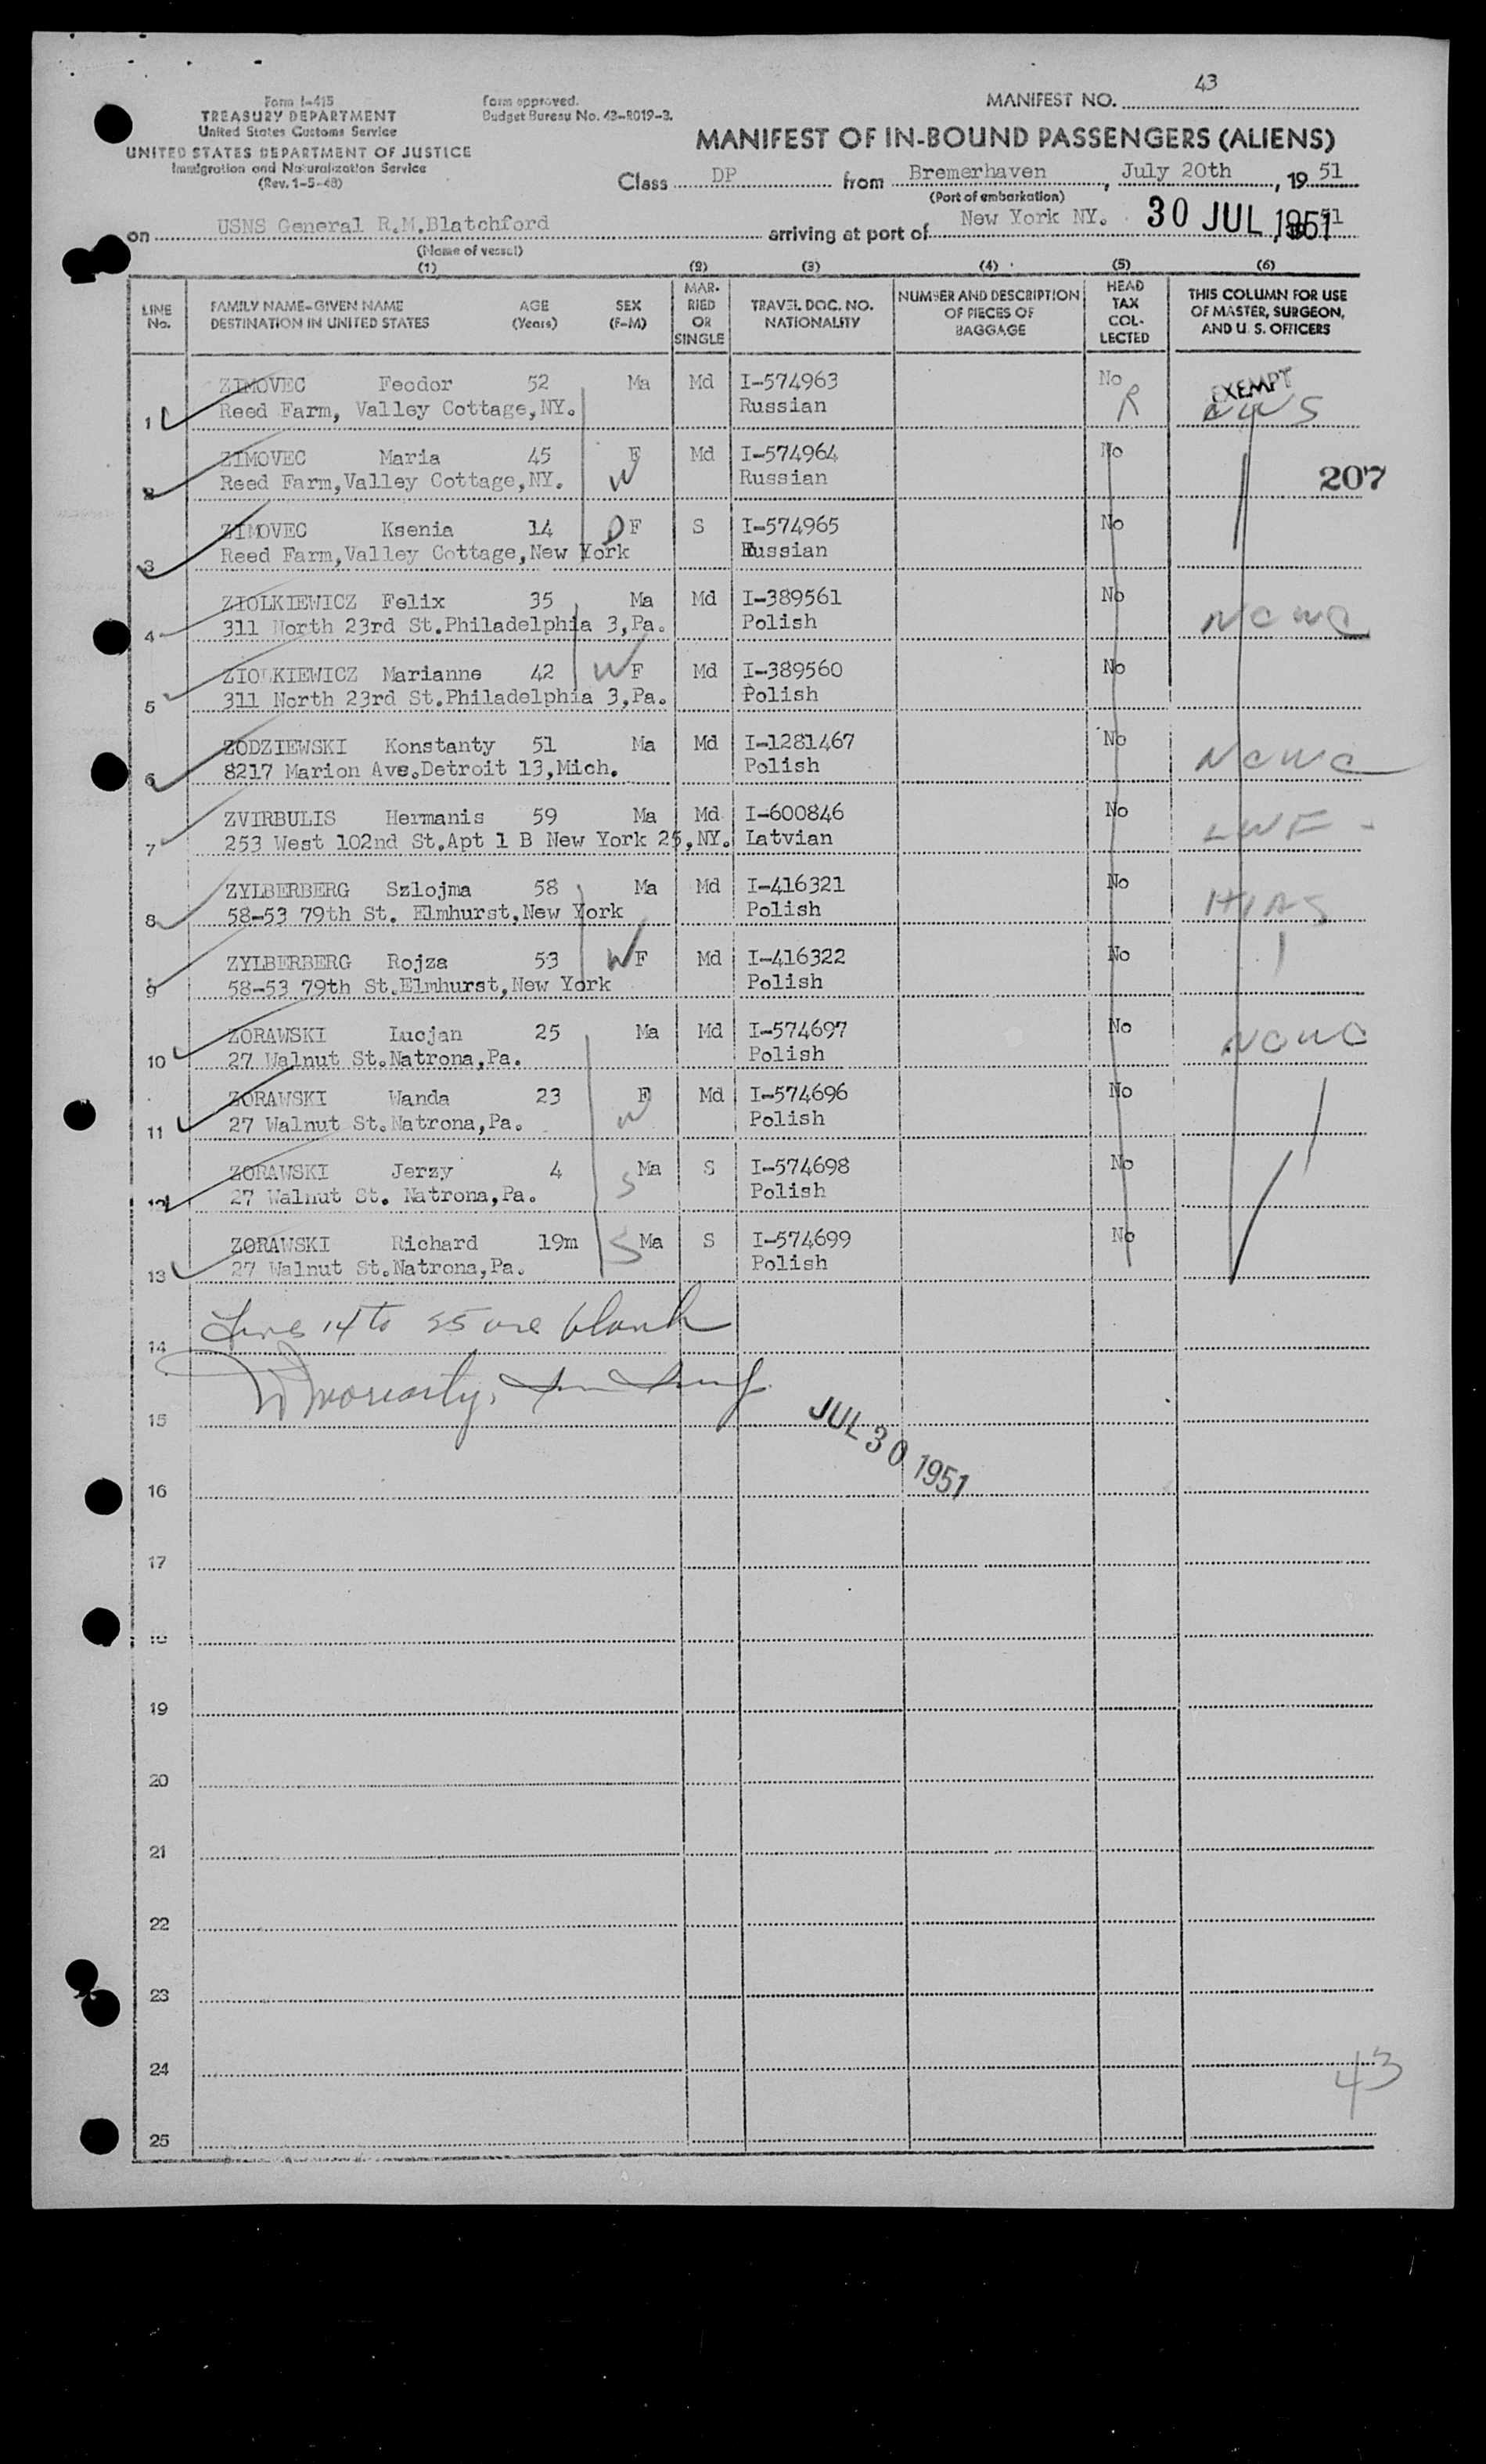 43
MANIFEST NO.
Form I-415
TREASURY DEPARTMENT
United States Customs Service
UNITED STATES DEPARTMENT OF JUSTICE
Immigration and Naturalization Service
(Rev. 1-5-48)
Form approved.
Budget Bureau No. 43-R019-3.
MANIFEST OF IN-BOUND PASSENGERS (ALIENS)
Class DP from Bremerhaven, July 20th, 19 51
(Port of embarkation)
on USNS General R.M.Blatchford arriving at port of New York NY. 30 JUL 1951
(Name of vessel)
(1) (2) (3) (4) (5) (6)
LINE No. FAMILY NAME-GIVEN NAME DESTINATION IN UNITED STATES AGE (Years) SEX (F-M) MAR-RIED OR SINGLE TRAVEL DOC. NO. NATIONALITY NUMBER AND DESCRIPTION OF PIECES OF BAGGAGE HEAD TAX COL-LECTED THIS COLUMN FOR USE OF MASTER, SURGEON, AND U. S. OFFICERS
ZIMOVEC Feodor 52 Ma Md I-574963 No EXEMPT
1 Reed Farm, Valley Cottage,NY. Russian R
ZIMOVEC Maria 45 F Md I-574964 No
2 Reed Farm,Valley Cottage,NY. W Russian 207
ZIMOVEC Ksenia 14 D F S I-574965 No
3 Reed Farm,Valley Cottage,New York Russian
ZIOLKIEWICZ Felix 35 Ma Md I-389561 No
4 311 North 23rd St.Philadelphia 3,Pa. Polish NCWC
ZIOLKIEWICZ Marianne 42 W F Md I-389560 No
5 311 North 23rd St.Philadelphia 3,Pa. Polish
ZODZIEWSKI Konstanty 51 Ma Md I-1281467 No
6 8217 Marion Ave.Detroit 13,Mich. Polish NCWC
ZVIRBULIS Hermanis 59 Ma Md I-600846 No
7 253 West 102nd St.Apt 1 B New York 25,NY. Latvian LWF
ZYLBERBERG Szlojma 58 Ma Md I-416321 No
8 58-53 79th St. Elmhurst,New York Polish HIAS
ZYLBERBERG Rojza 53 W F Md I-416322 No
9 58-53 79th St.Elmhurst,New York Polish
ZORAWSKI Lucjan 25 Ma Md I-574697 No
10 27 Walnut St.Natrona,Pa. Polish NCWC
ZORAWSKI Wanda 23 F Md I-574696 No
11 27 Walnut St.Natrona,Pa. W Polish
ZORAWSKI Jerzy 4 Ma S I-574698 No
12 27 Walnut St. Natrona,Pa. S Polish
ZORAWSKI Richard 19m S Ma S I-574699 No
13 27 Walnut St.Natrona,Pa. Polish
14 Lines 14 to 25 are blank
15 Moriarty
JUL 30 1951
16
17
18
19
20
21
22
23
24
43
25